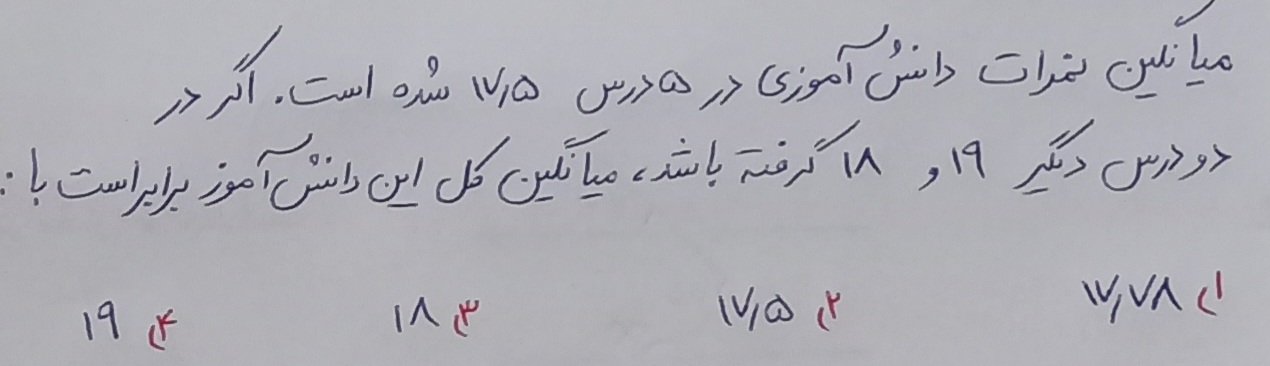 میانگین نمرات دانش آموزی در ۵ درس ۱۷٫۵ شده است. اگر در
دو درس دیگر ۱۹ و ۱۸ گرفته باشد، میانگین کل این دانش آموز برابر است با :
۱) ۱۷٫۷۸ ۲) ۱۷٫۵ ۳) ۱۸ ۴) ۱۹